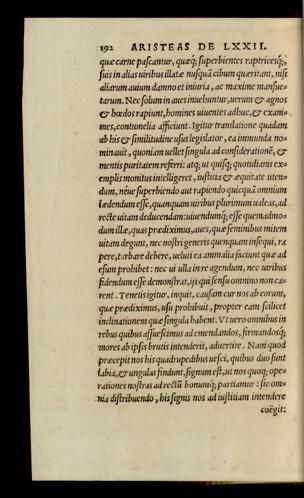 192 ARISTEAS DE LXXII.
quæ carne pascantur, quæq; superbientes raptricesq́;
suis in alias uiribus illatæ nusquā cibum quæritant, nisi
aliarum auium damno et iniuria, ac maxime mansue-
tarum. Nec solum in aues inuehuntur, uerum & agnos
& hœdos rapiunt, homines uiuentes adhuc, & exani-
mes, contumelia afficiunt. Igitur translatione quadam
ab his & similitudine usus legislator, ea immunda no-
minauit, quoniam uellet singula ad considerationē, &
mentis puritatem referri: atq; ut quisq; quotidianis ex-
emplis monitus intelligeret, iustitia & æquitate uten-
dum, néue superbiendo aut rapiendo quicquā omnium
lædendum esse, quanquam uiribus plurimum ualeas, ad
recte uitam deducendam: uiuendumq́; esse quemadmo-
dum illæ, quas prædiximus, aues, quæ seminibus mitem
uitam degunt, nec nostri generis quenquam insequi, ra
pere, turbare debere, ueluti ea animalia faciunt quæ ad
esum prohibet: nec ui ulla in re agendum, nec uiribus
fidendum esse demonstrat, ijs qui sensu omnino non ca-
rent. Tenetis igitur, inquit, causam cur nos ab eorum,
quæ prædiximus, usu prohibuit, propter eam scilicet
inclinationem quæ singula habent. Vt uero omnibus in
rebus quibus assuescimus ad emendandos, firmandosq́;
mores ab ipsis brutis intenderit, aduertite. Nam quod
præcepit nos his quadrupedibus uesci, quibus duo sunt
labia, & ungulas findunt, signum est, ut nos quoq; ope-
rationes nostras ad rectū bonumq́; partiamur: sic om-
nia distribuendo, his signis nos ad iustitiam intendere
coëgit: